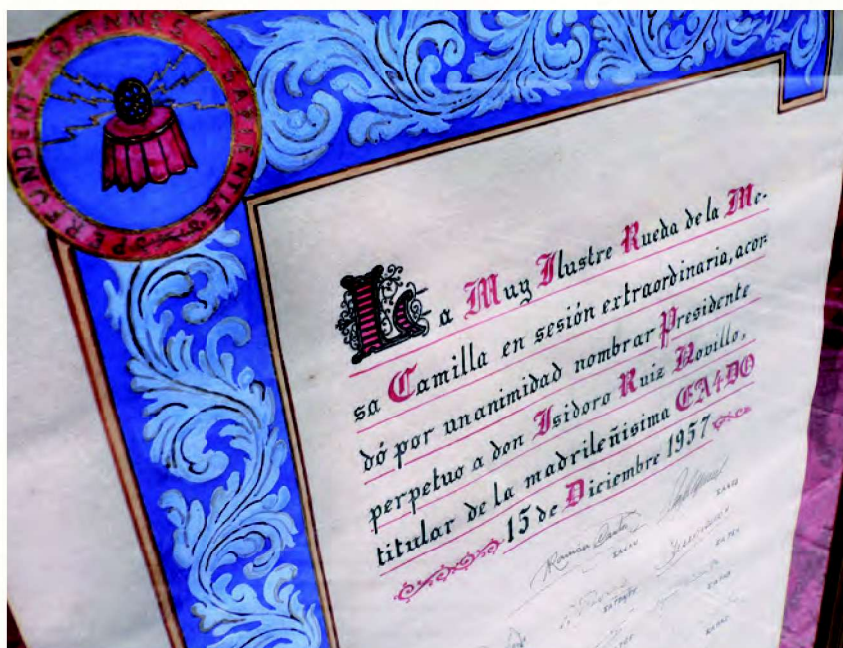 La Muy Ilustre Rueda de la Me-
sa Camilla en sesión extraordinaria, acor-
dó por unanimidad nombrar Presidente
perpetuo a don Isidoro Ruiz Novillo,
titular de la madrileñisima EA4DO
15 de Diciembre 1957